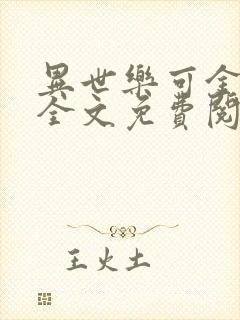 異世樂可全
全文免費閱
王火土